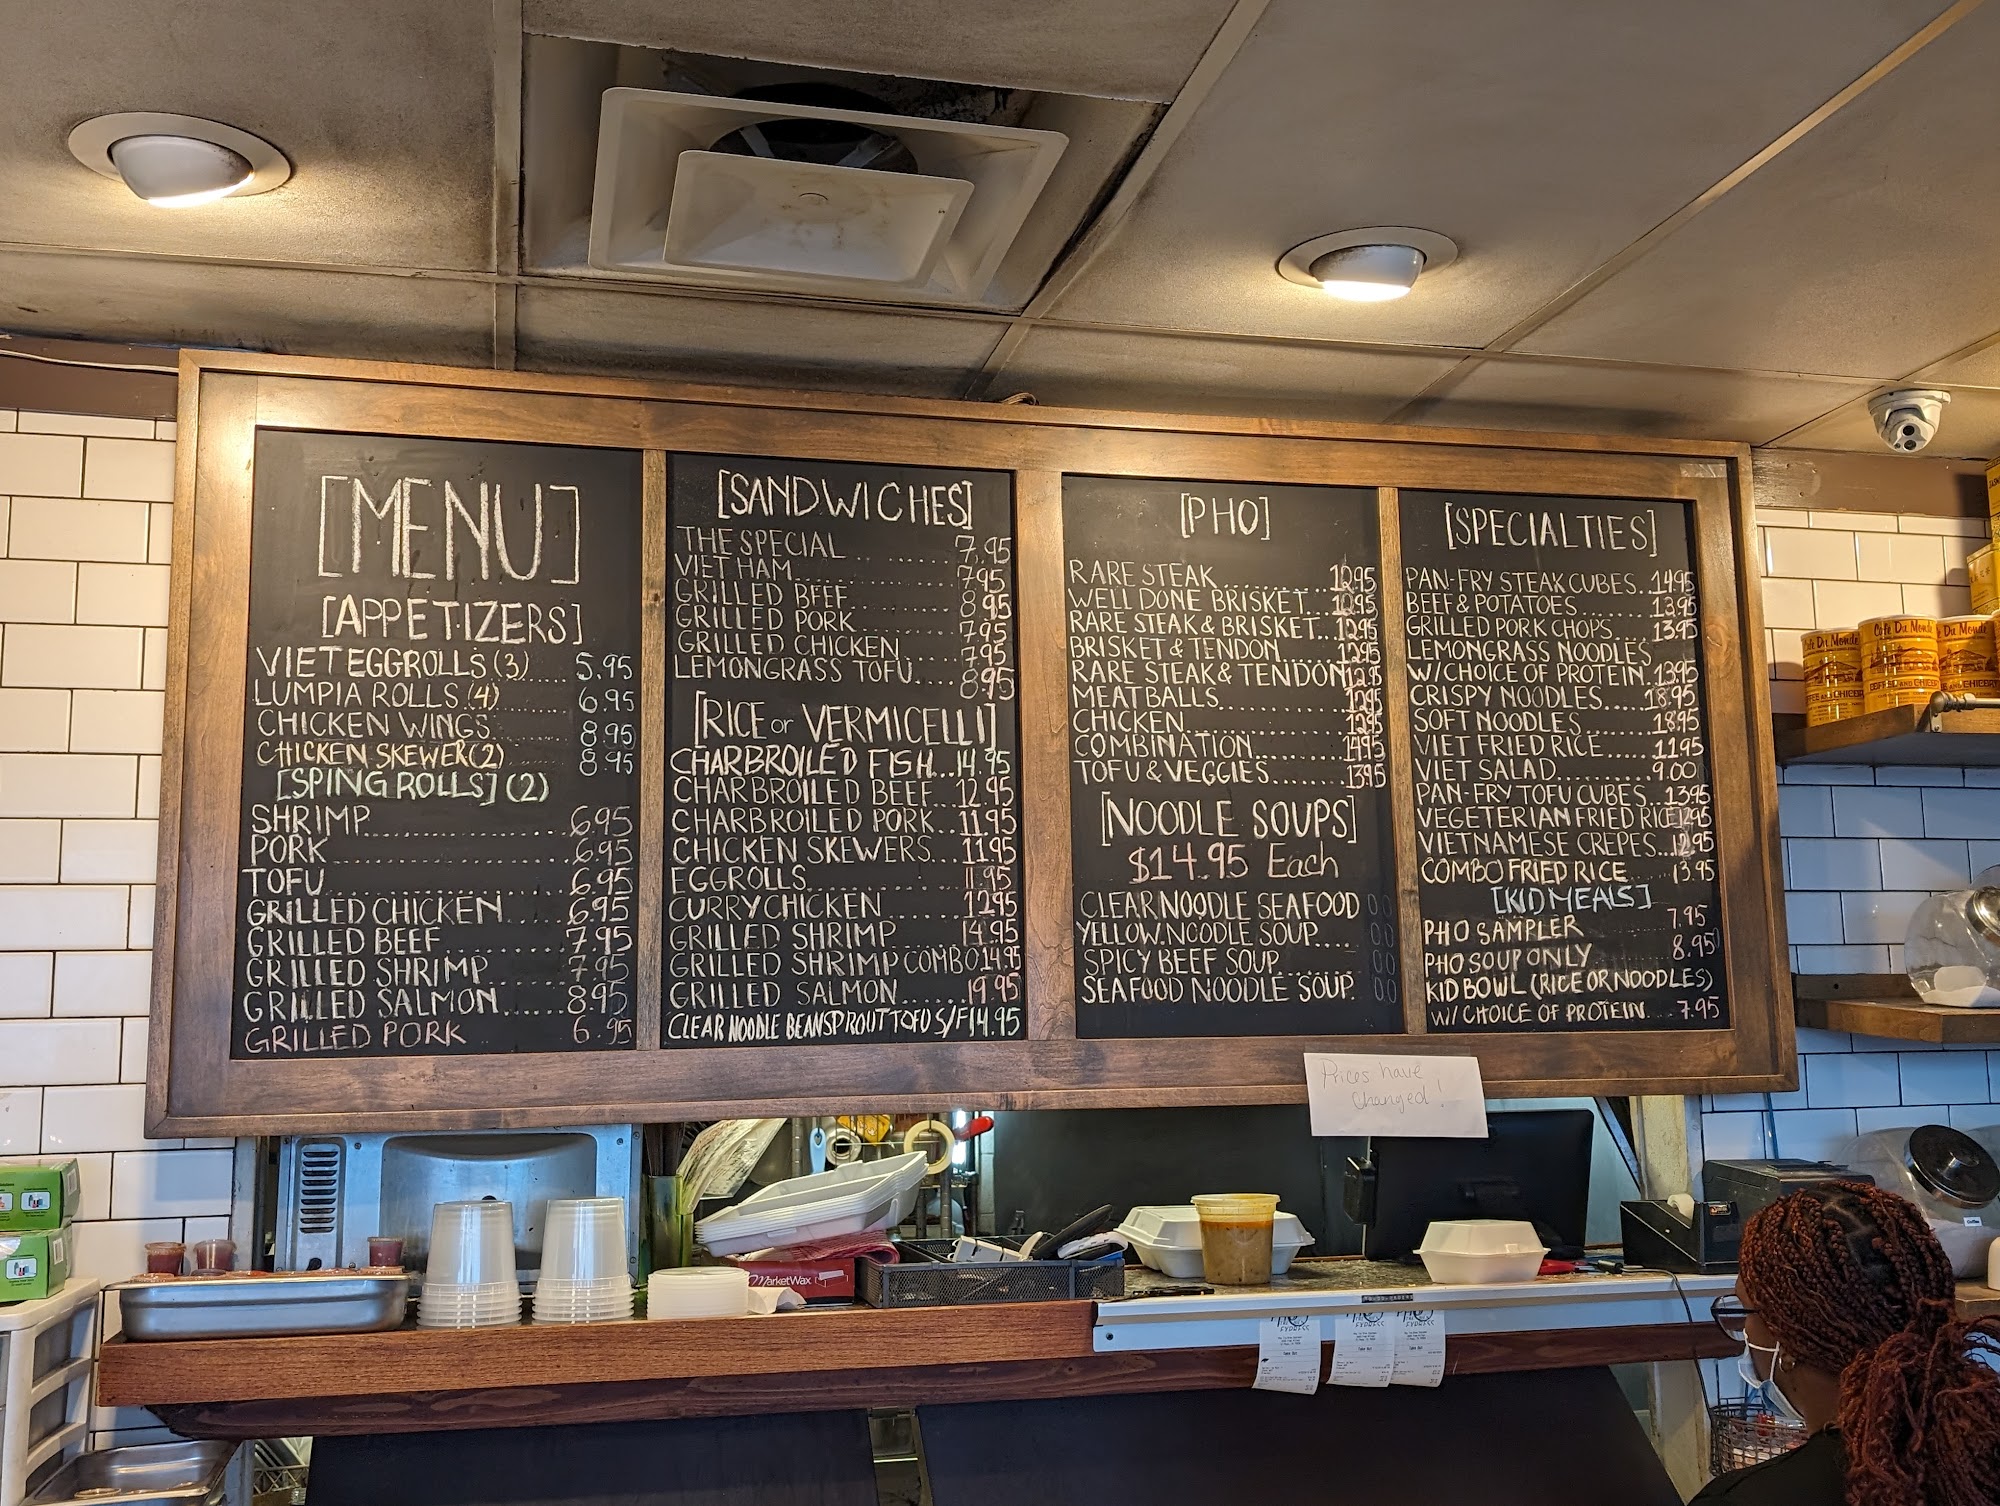 [MENU]
[APPETIZERS]
VIET EGGROLLS (3)..... 5.95
LUMPIA ROLLS (4)........ 6.95
CHICKEN WINGS......... 8.95
CHICKEN SKEWER (2) 8.95
[SPING ROLLS] (2)
SHRIMP.................... 6.95
PORK........................ 6.95
TOFU........................ 6.95
GRILLED CHICKEN...... 6.95
GRILLED BEEF............ 7.95
GRILLED SHRIMP........ 7.95
GRILLED SALMON...... 8.95
GRILLED PORK 6.95
[SANDWICHES]
THE SPECIAL.......... 7.95
VIET HAM............... 7.95
GRILLED BEEF........ 8.95
GRILLED PORK........ 7.95
GRILLED CHICKEN.... 7.95
LEMONGRASS TOFU.... 8.95
[RICE or VERMICELLI]
CHARBROILED FISH...14.95
CHARBROILED BEEF...12.95
CHARBROILED PORK...11.95
CHICKEN SKEWERS...11.95
EGGROLLS...............11.95
CURRY CHICKEN........12.95
GRILLED SHRIMP.......14.95
GRILLED SHRIMP COMBO 14.95
GRILLED SALMON......19.95
CLEAR NOODLE BEANSPROUT TOFU S/F 14.95
[PHO]
RARE STEAK............12.95
WELL DONE BRISKET...12.95
RARE STEAK & BRISKET..12.95
BRISKET & TENDON......12.95
RARE STEAK & TENDON 12.95
MEATBALLS.............12.95
CHICKEN................12.95
COMBINATION..........14.95
TOFU & VEGGIES.......13.95
[NOODLE SOUPS]
$14.95 Each
CLEAR NOODLE SEAFOOD
YELLOW NOODLE SOUP....
SPICY BEEF SOUP.........
SEAFOOD NOODLE SOUP.
[SPECIALTIES]
PAN-FRY STEAK CUBES..14.95
BEEF & POTATOES........13.95
GRILLED PORK CHOPS...13.95
LEMONGRASS NOODLES
W/CHOICE OF PROTEIN..13.95
CRISPY NOODLES.....18.95
SOFT NOODLES.......18.95
VIET FRIED RICE.....11.95
VIET SALAD..........9.00
PAN-FRY TOFU CUBES..13.95
VEGETERIAN FRIED RICE 12.95
VIETNAMESE CREPES..12.95
COMBO FRIED RICE 13.95
[KID MEALS]
PHO SAMPLER 7.95
PHO SOUP ONLY 8.95
KID BOWL (RICE OR NOODLES)
W/ CHOICE OF PROTEIN 7.95
Prices have
Changed!
Cafe Du Monde
COFFEE AND CHICORY
Cafe Du Monde
COFFEE AND CHICORY
Du Monde
AND CHICORY
MarketWax
EXPRESS
Take Out
Take Out
Take Out
Coffee